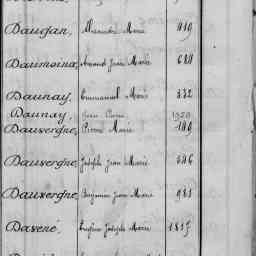 Daugan, Alexandre Marie 419
Daumoina, Armand Jean Marie 684
Daunay, Emmanuel Marie 332
Daunay, Jean Pierre 1920
Dauvergne, Pierre Marie 149
Dauvergne, Joseph Jean Marie 546
Dauvergne, Benjamin Jean Marie 981
Davené, Eugène Joseph Marie 1817